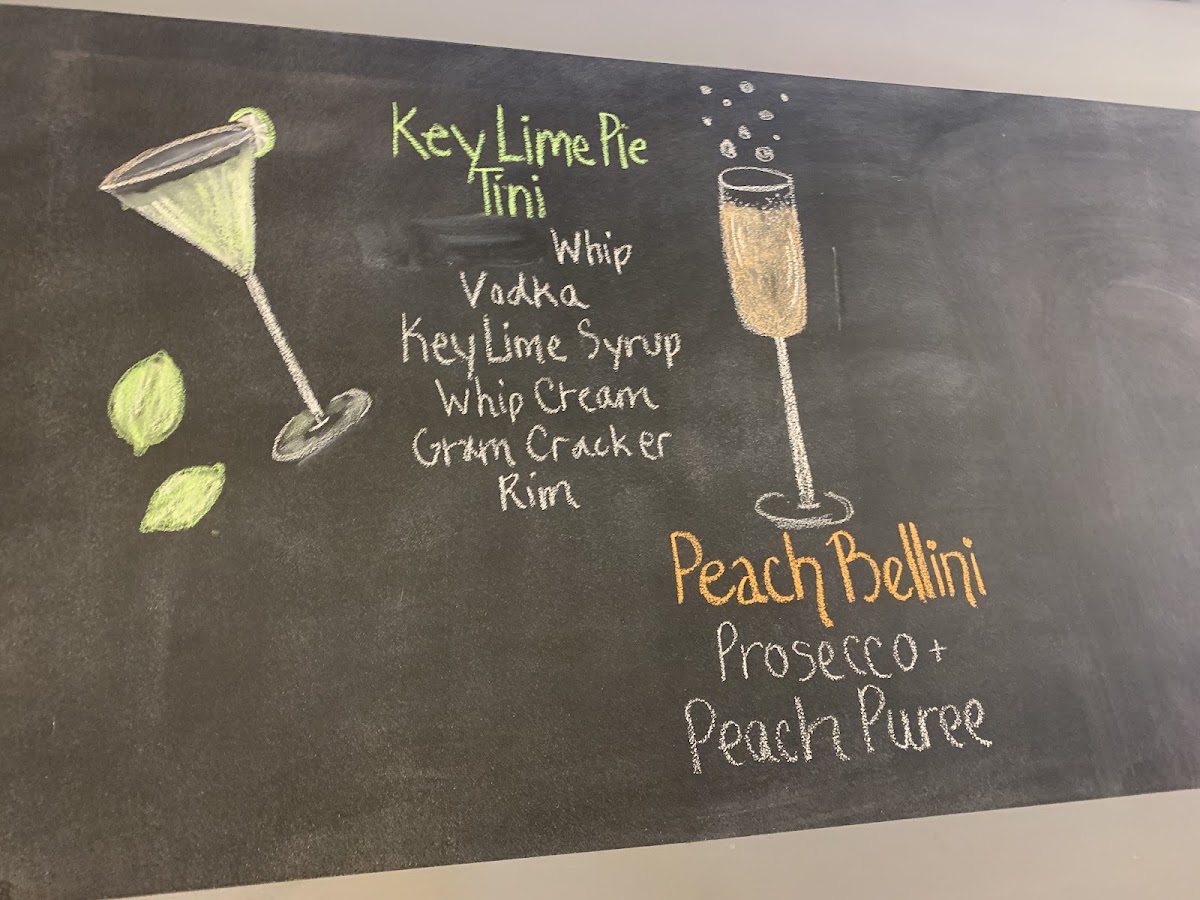 Key Lime Pie
Tini
Whip
Vodka
Key Lime Syrup
Whip Cream
Gram Cracker
Rim
Peach Bellini
Prosecco +
Peach Puree